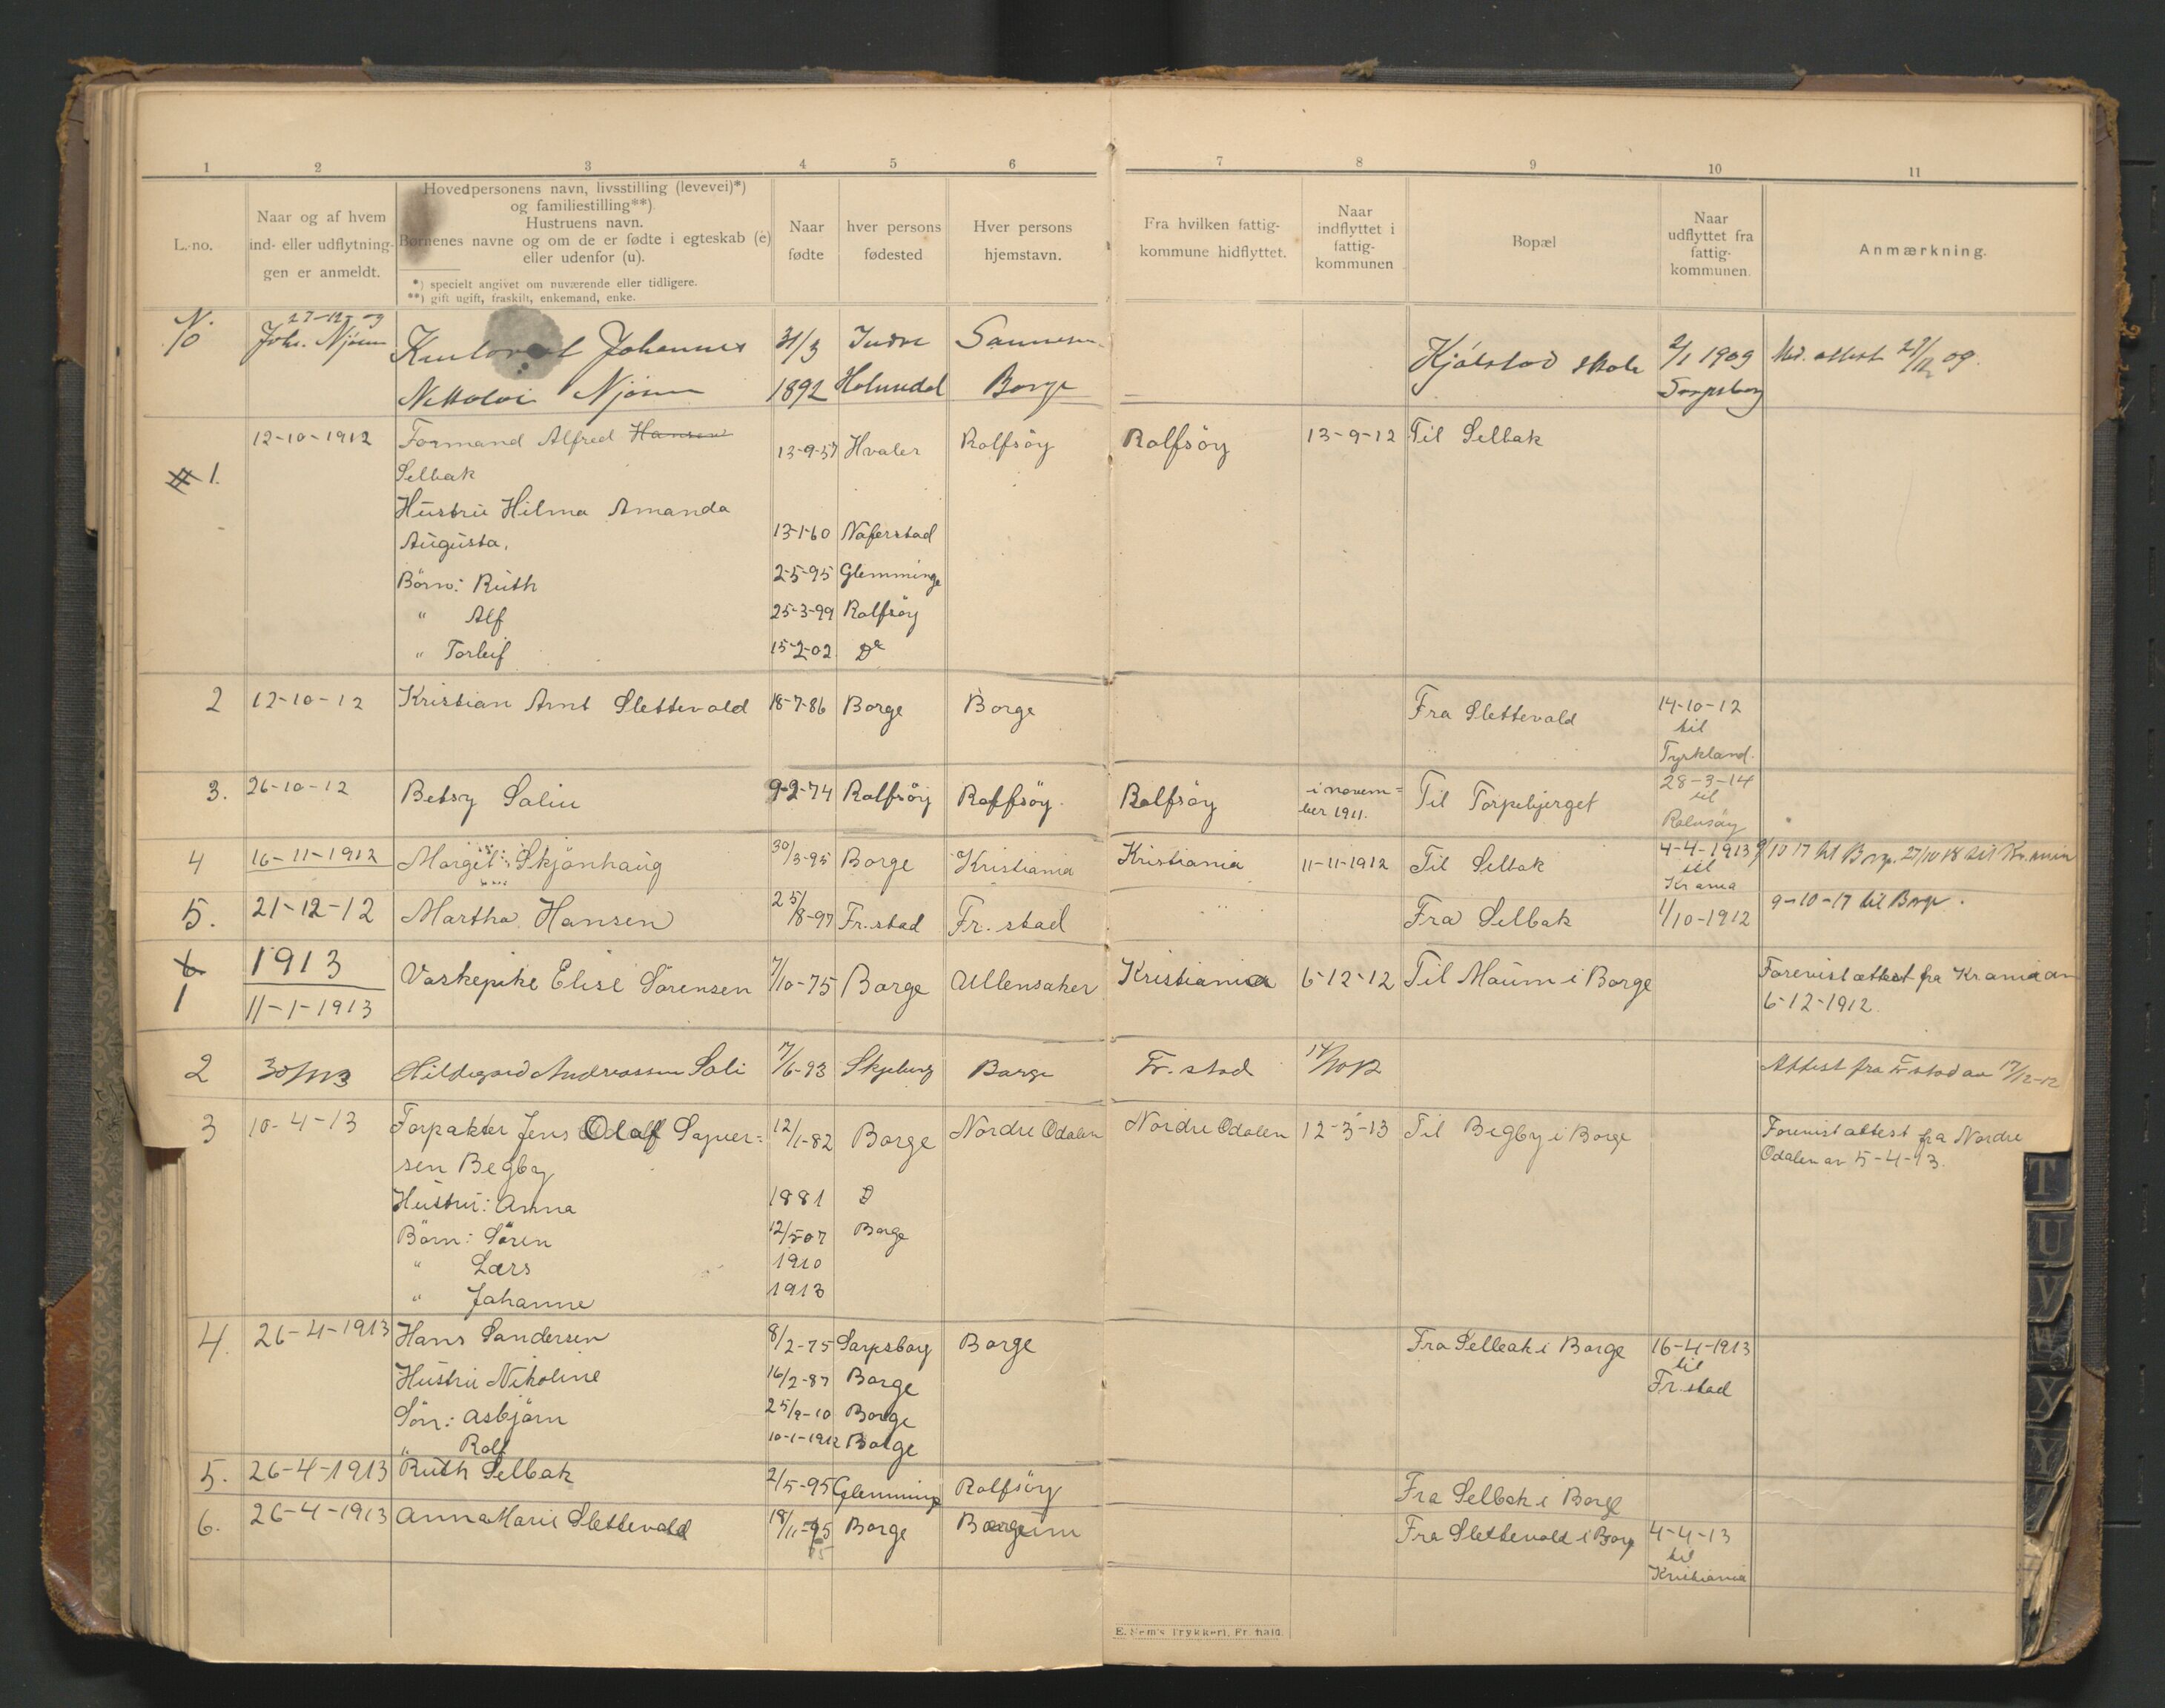 1 2 3 4 5 6 7 8 9 10 11
L.-no.
Naar og af hvem
ind- eller udflytnin-
gen er anmeldt.
Hovedpersonens navn, livsstilling (levevei)*)
og familiestilling**)
Hustruens navn.
Børnenes navne og om de er fødte i egteskab (e)
eller udenfor (u).
*) specielt angivet om nuværende eller tidligere.
**) gift ugift, fraskilt, enkemand, enke.
Naar
fødte
hver persons
fødested
Hver persons
hjemstavn.
Fra hvilken fattig-
kommune hidflyttet.
Naar
indflyttet i
fattig-
kommunen
Bopæl
Naar
udflyttet fra
fattig-
kommunen.
Anmærkning.
27-12-09
Johs. Njøsen Johannes 31/3 Indre Kjølstad skole 2/1 1909 Md. attest 27/12 09.
Njøsen 1892 Holmedal Borge Sarpsborg
1. 12-10-1912 Formand Alfred Hansen 13-9-57 Hvaler Rolfsöy Rolfsöy 13-9-12 Til Selbak
Selbak
Hustru Hilma Amanda
Augusta, 13-1-60 Näferstad
Börn: Ruth 2-5-95 Glemminge
" Alf 25-3-99 Rolfsöy
" Torleif 15-2-02 Do
2 12-10-12 Kristian Arnt Slettevold 18-7-86 Borge Borge Fra Slettevold 14-10-12
til
Tyrkland.
3. 26-10-12 Betsy Salin 9-2-74 Rolfsöy Rolfsöy. Rolfsöy i novem= Til Torpebjerget 28-3-14
ber 1911. til
Rolvsöy
4 16-11-1912 Margit Skjönhaug 30/3-95 Borge Kristiania Kristiania 11-11-1912 Til Selbak 4-4-1913 9/10 17 til Borge. 27/10 18 til Kr.ania
til
Krania
5. 21-12-12 Martha Hansen 25/8-97 Fr.stad Fr. stad Fra Selbak 1/10-1912 9-10-17 til Borge.
6 1913
1 11-1-1913 Vaskepike Elise Sörensen 7/10-75 Borge Ullensaker Kristiania 6-12-12 Til Moum i Borge Forevist attest fra Krania av
6-12-1912.
2 Hildegard Andreassen Soli 7/6-93 Skjeberg Borge Fr. stad Attest fra Fr.stad av 17/12-12
3 10-4-13 Forpakter Jens Olaf Saguer= 12/1-82 Borge Nordre Odalen Nordre Odalen 12-3-13 Til Begby i Borge Forevist attest fra Nordre
sen Begby Odalen av 5-4-13.
Hustru: Anna 1881 D
Börn: Sören 12/5-07 Borge
" Lars 1910
" Johanne 1913
4. 26-4-1913 Hans Sandersen 8/2-75 Sarpsborg Borge Fra Selbak i Borge 16-4-1913
til
Hustru Nikoline 16/2-87 Borge Fr. stad
Sön: Asbjörn 25/9-10 Borge
" Rolf 10-1-1912 Borge
5. 26-4-1913 Ruth Selbak 2/5-95 Glemminge Rolfsöy Fra Selbak i Borge
6. 26-4-1913 Anna Marie Slettevold 18/11-95 Borge Fra Slettevold i Borge 4-4-13
til
Kristiania
E. Sem's Trykkeri, Fr.hald.
T
U
V
W
X
Y